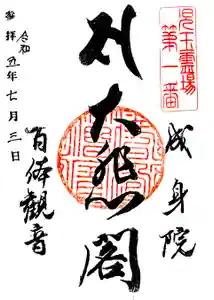 児玉霊場
第一番
成身院
大悲閣
百体観音
参拝
令和五年七月三日